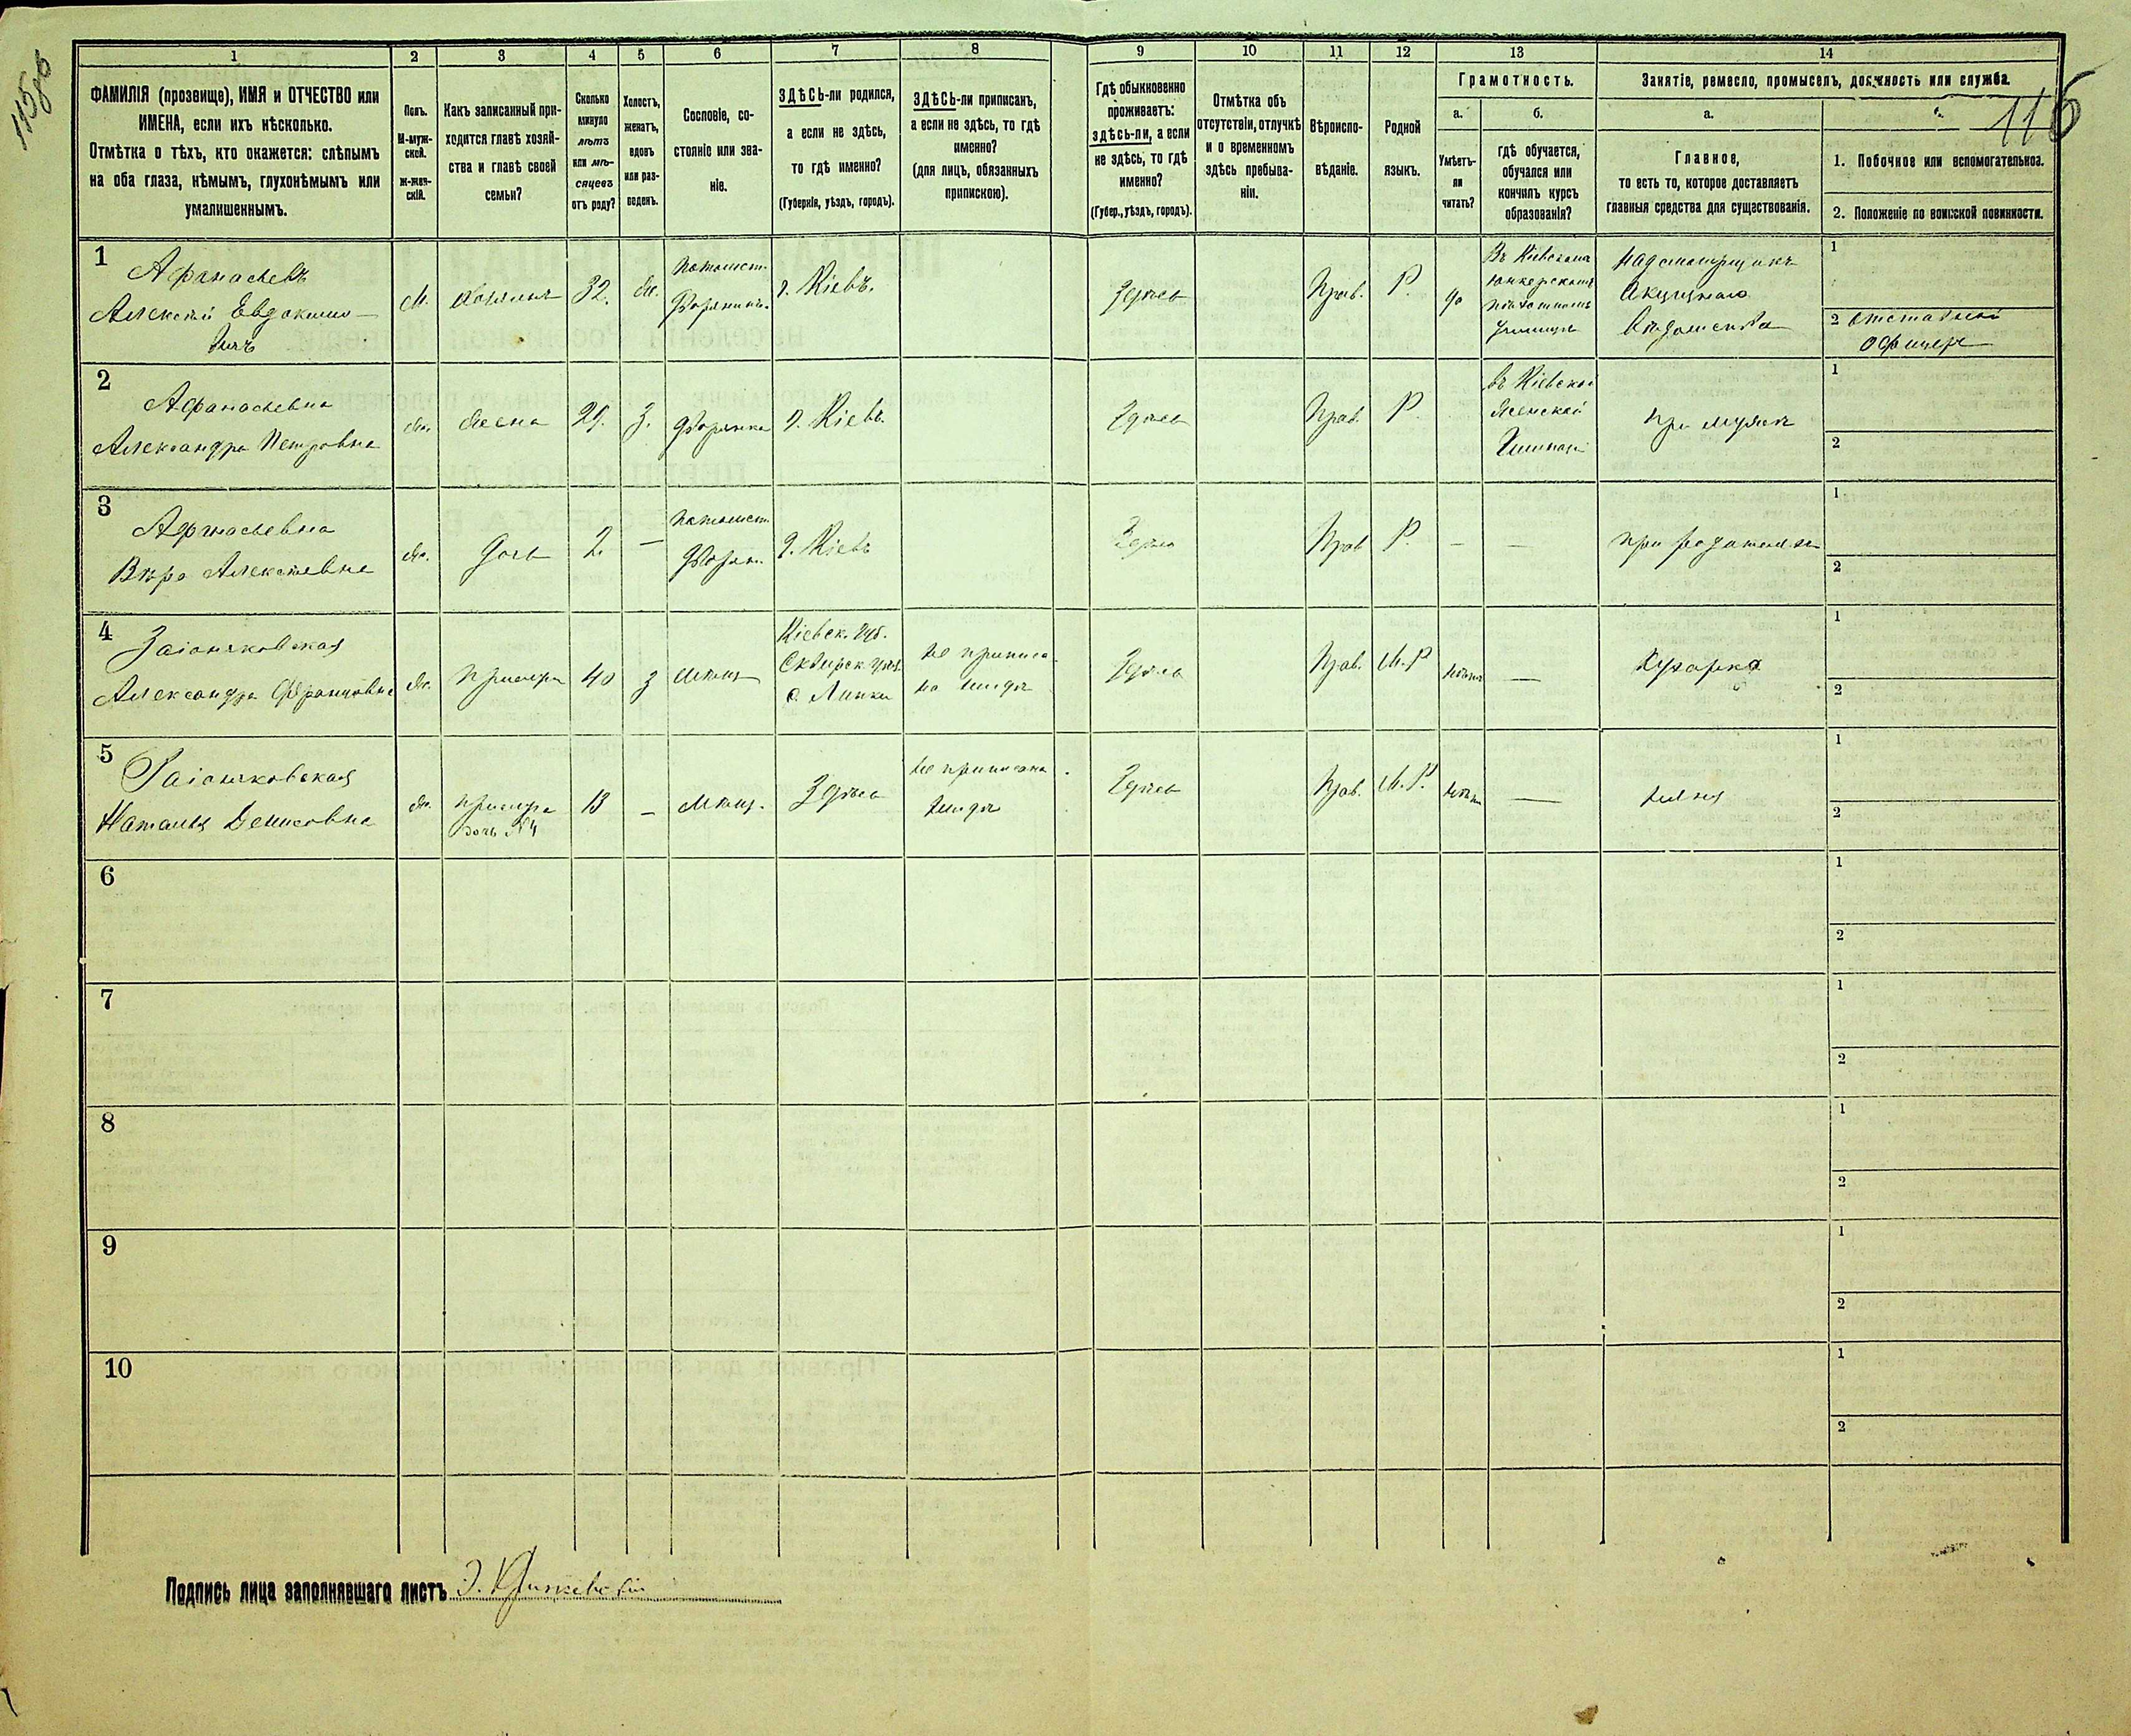 115об
116
1 2 3 4 5 6 7 8 9 10 11 12 13 14
ФАМИЛІЯ (прозвище), ИМЯ и ОТЧЕСТВО или
ИМЕНА, если ихъ нѣсколько.
Отмѣтка о тѣхъ, кто окажется: слѣпымъ
на оба глаза, нѣмымъ, глухонѣмымъ или
умалишеннымъ.
Полъ.
М-муж-
ской.
Ж-жен-
скій.
Какъ записанный при-
ходится главѣ хозяй-
ства и главѣ своей
семьи?
Сколько
минуло
лѣтъ
или мѣ-
сяцевъ
отъ роду?
Холостъ,
женатъ,
вдовъ
или раз-
веденъ.
Сословіе, со-
стояніе или зва-
ніе.
ЗДѢСЬ-ли родился,
а если не здѣсь,
то гдѣ именно?
(Губернія, уѣздъ, городъ).
ЗДѢСЬ-ли приписанъ,
а если не здѣсь, то гдѣ
именно?
(для лицъ, обязанныхъ
припискою).
Гдѣ обыкновенно
проживаетъ:
здѣсь-ли, а если
не здѣсь, то гдѣ
именно?
(Губер., уѣздъ, городъ).
Отмѣтка объ
отсутствіи, отлучкѣ
и о временномъ
здѣсь пребыва-
ніи.
Вѣроиспо-
вѣданіе.
Родной
языкъ.
Грамотность.
а.
Умѣетъ-
ли
читать?
б.
гдѣ обучается,
обучался или
кончилъ курсъ
образованія?
Занятіе, ремесло, промыселъ, должность или служба.
а.
Главное,
то есть то, которое доставляетъ
главныя средства для существованія.
1. Побочное или вспомогательное.
2. Положеніе по воинской повинности.
1
Афанасьевъ
Алексѣй Евдокимо-
вичъ
М. хозяинъ 32. ж.
потомст.
дворянинъ.
г. Кіевъ.
Здѣсь
Прав. Р. да
Въ Кіевскомъ
юнкерскомъ
пѣхотномъ
училищѣ
Надсмотрщикъ
Акцизнаго
Вѣдомства
1
2 отставной
офицеръ
2
Афанасьевна
Александра Петровна
ж. жена 29. З. дворянка г. Кіевъ.
Здѣсь
Прав. Р.
въ Кіевской
женской
Гимназіи
при мужѣ
1
2
3
Афанасьевна
Вѣра Алексѣевна
ж. дочь 2. —
потомст.
дворян.
г. Кіевъ
Здѣсь
Прав Р. — —
при родителяхъ
1
2
4
Заіончковская
Александра Францовна
ж. прислуга 40 З мѣщ
Кіевск. губ.
Сквирск уѣз.
с. Липки
не приписа-
на нигдѣ
Здѣсь
Прав. М.Р нѣтъ —
Кухарка
1
2
5
Заіончковская
Наталья Денисовна
ж.
прислуга
дочь №4
13 — мѣщ. Здѣсь
не приписана
нигдѣ
Здѣсь
Прав. М.Р. нѣтъ —
няня
1
2
6
1
2
7
1
2
8
1
2
9
1
2
10
1
2
Подпись лица заполнявшаго листъ